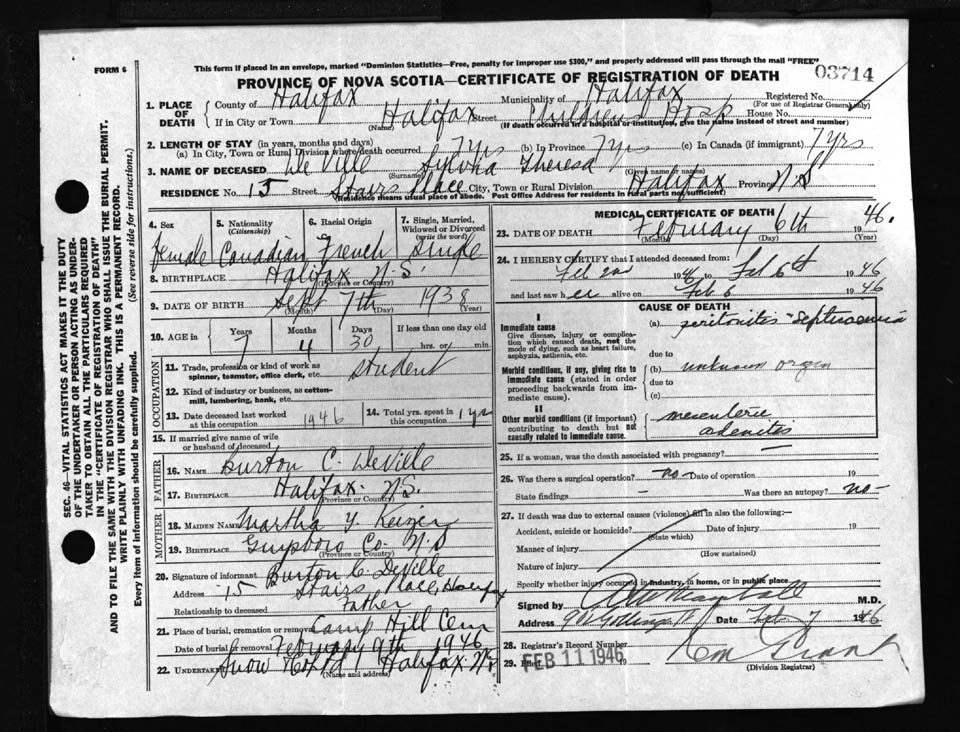 FORM 6
This form if placed in an envelope, marked "Dominion Statistics—Free, penalty for improper use $300," and properly addressed will pass through the mail "FREE"
PROVINCE OF NOVA SCOTIA—CERTIFICATE OF REGISTRATION OF DEATH
03714
1. PLACE OF DEATH
County of Halifax Municipality of Halifax Registered No.
(For use of Registrar General only)
If in City or Town Halifax Street Childrens Hosp House No.
(Name) (If death occurred in a hospital or institution, give the name instead of street and number)
2. LENGTH OF STAY (in years, months and days)
(a) In City, Town or Rural Division where death occurred 7 yrs (b) In Province 7 yrs (c) In Canada (if immigrant) 7 yrs
3. NAME OF DECEASED De Ville Theresa
(Surname) (Given name or names)
RESIDENCE No. 15 Street Stairs Place City, Town or Rural Division Halifax Province N.S
(Residence means usual place of abode. Post Office Address for residents in rural parts not sufficient)
4. Sex Female
5. Nationality (Citizenship) Canadian
6. Racial Origin French
7. Single, Married, Widowed or Divorced (write the word) Single
8. BIRTHPLACE Halifax N.S.
(Province or Country)
9. DATE OF BIRTH Sept 7th 1938
(Month) (Day) (Year)
10. AGE in Years Months Days If less than one day old
7 4 30 hrs. or min.
OCCUPATION
11. Trade, profession or kind of work as spinner, teamster, office clerk, etc. Student
12. Kind of industry or business, as cotten-mill, lumbering, bank, etc.
13. Date deceased last worked at this occupation 1946
14. Total yrs. spent in this occupation 1 yr
15. If married give name of wife or husband of deceased
FATHER
16. NAME Burton C. DeVille
17. BIRTHPLACE Halifax N.S.
(Province or Country)
MOTHER
18. MAIDEN NAME Martha Y. Keizer
19. BIRTHPLACE Co. N.S
(Province or Country)
20. Signature of informant Burton C. DeVille
Address 15 Stairs Place, Halifax
Relationship to deceased Father
21. Place of burial, cremation or removal Camp Hill Cem
Date of burial or removal February 9th 1946
22. UNDERTAKER Snow & Co Ltd Halifax N.S.
(Name and address)
MEDICAL CERTIFICATE OF DEATH
23. DATE OF DEATH February 6th 1946.
(Month) (Day) (Year)
24. I HEREBY CERTIFY that I attended deceased from:
Feb 1946 to Feb 6th 1946
and last saw her alive on Feb 6 1946
CAUSE OF DEATH
I
Immediate cause
Give disease, injury or complication which caused death, not the mode of dying, such as heart failure, asphyxia, asthenia, etc.
(a) peritonitis - septicaemia
due to
Morbid conditions, if any, giving rise to immediate cause (stated in order proceeding backwards from immediate cause).
(b) unknown origin
due to
(c)
II
Other morbid conditions (if important) contributing to death but not causally related to immediate cause.
mesenteric
adenitis
25. If a woman, was the death associated with pregnancy?
26. Was there a surgical operation? -no- Date of operation 19
State findings - Was there an autopsy? -no-
27. If death was due to external causes (violence) fill in also the following:—
Accident, suicide or homicide? Date of injury 19
(State which)
Manner of injury
(How sustained)
Nature of injury
Specify whether injury occurred in industry, in home, or in public place
Signed by M.D.
Address Date Feb. 7 1946
28. Registrar's Record Number
29. Filed FEB 11 1946
(Division Registrar)
SEC. 46—VITAL STATISTICS ACT MAKES IT THE DUTY OF THE UNDERTAKER OR PERSON ACTING AS UNDERTAKER TO OBTAIN ALL THE PARTICULARS REQUIRED IN THE "CERTIFICATE OF REGISTRATION OF DEATH"
AND TO FILE THE SAME WITH THE DIVISION REGISTRAR WHO SHALL ISSUE THE BURIAL PERMIT.
WRITE PLAINLY WITH UNFADING INK. THIS IS A PERMANENT RECORD.
Every item of information should be carefully supplied. (See reverse side for instructions.)